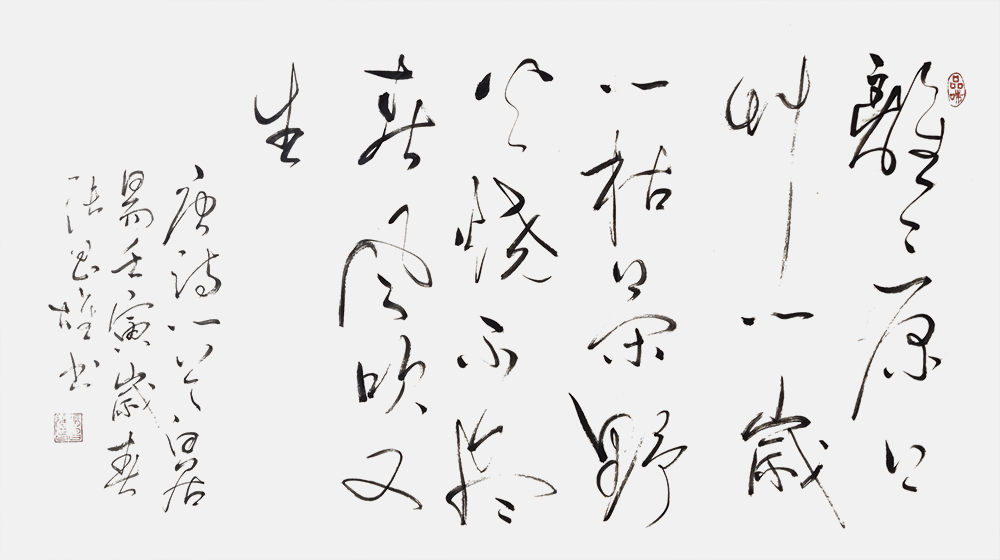 品味
離々原上
草一歲
一枯榮野
火燒不盡
春風吹又
生
唐詩一首白居
易壬寅歲春
張雄書